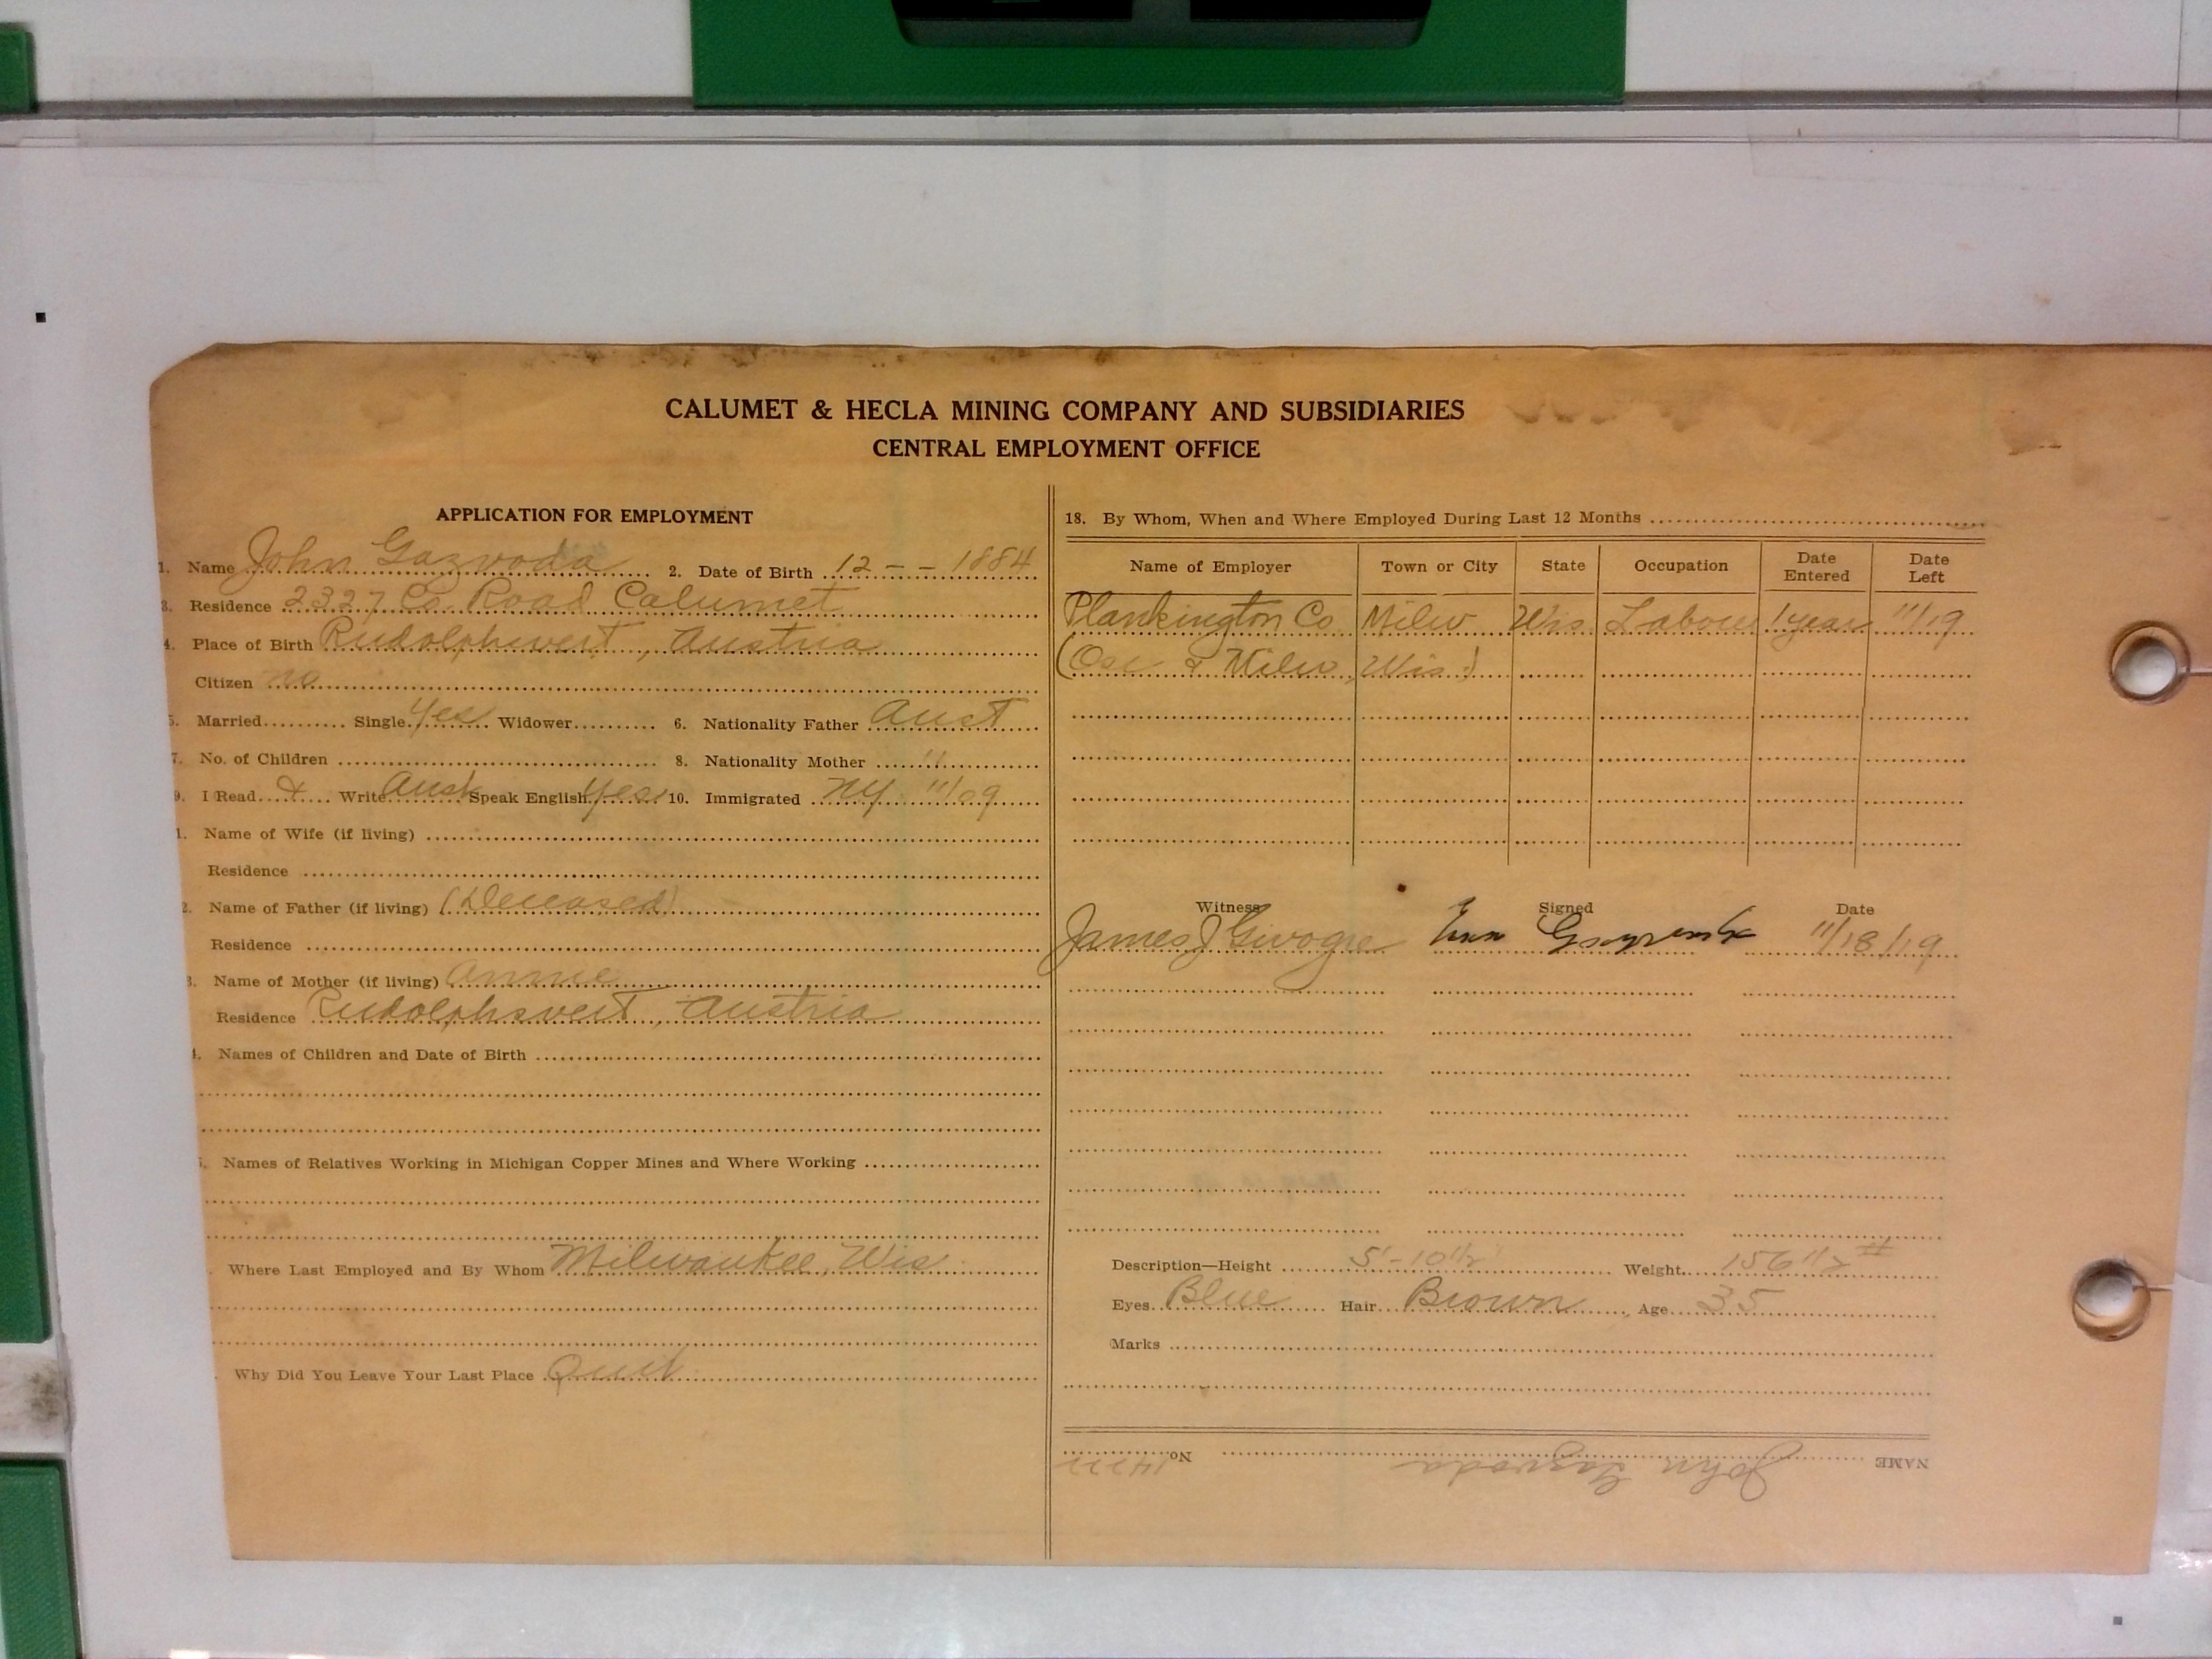 CALUMET & HECLA MINING COMPANY AND SUBSIDIARIES
CENTRAL EMPLOYMENT OFFICE
APPLICATION FOR EMPLOYMENT
1. Name John Gazvoda 2. Date of Birth 12 - - 1884
3. Residence 2327 Co. Road Calumet
4. Place of Birth Rudolphswert, Austria
Citizen no
5. Married Single Yes Widower 6. Nationality Father Aust
7. No. of Children 8. Nationality Mother "
9. I Read & Write Aust Speak English Yes 10. Immigrated NY 11/09
1. Name of Wife (if living)
Residence
2. Name of Father (if living) (Deceased)
Residence
3. Name of Mother (if living) Annie
Residence Rudolphswert, Austria
4. Names of Children and Date of Birth
5. Names of Relatives Working in Michigan Copper Mines and Where Working
Where Last Employed and By Whom Milwaukee, Wis
Why Did You Leave Your Last Place Quit
18. By Whom, When and Where Employed During Last 12 Months
Name of Employer Town or City State Occupation Date Entered Date Left
Plankington Co Milw Wis Labour 1 year 11/19
& Milw, Wis.)
Witness Signed Date
James J 11/18/19
Description—Height 5'-10 1/2" Weight 156 1/2 #
Eyes Blue Hair Brown, Age 35
Marks
NAME John Gazvoda No. 14222